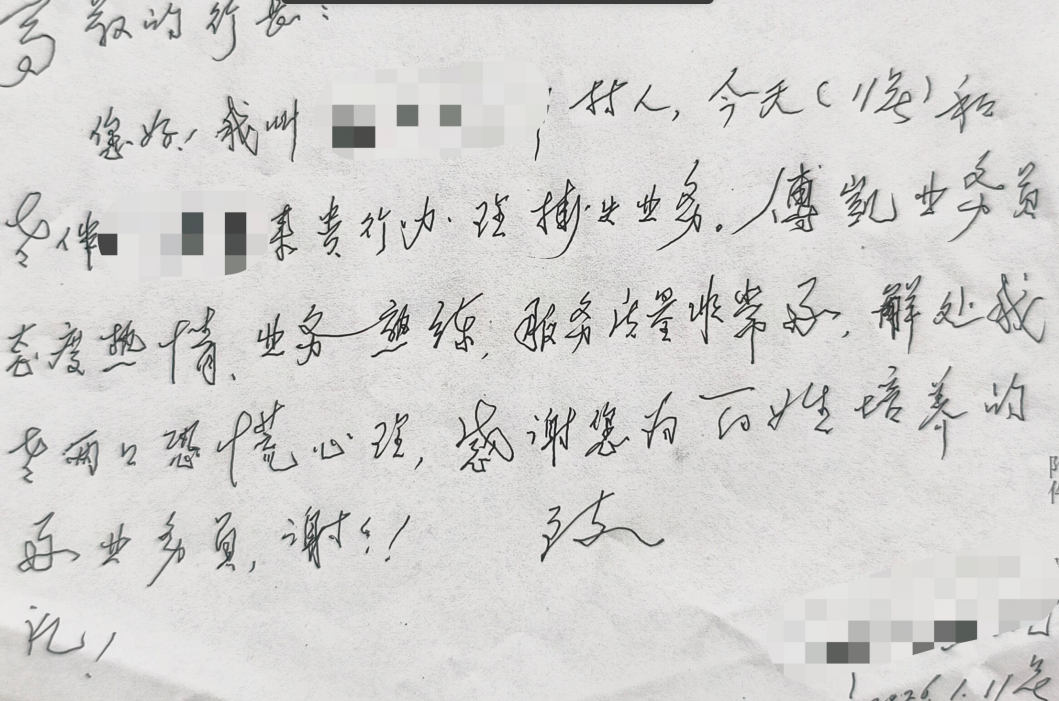 尊敬的行长：
您好！我叫 村人，今天（11号）和
老伴 来贵行办理挂失业务。傅凯业务员
态度热情、业务熟练，服务质量非常好，解处我
老两口恐慌心理，感谢您为百姓培养的
好业务员，谢谢！ 致
礼！
2026.1.11号